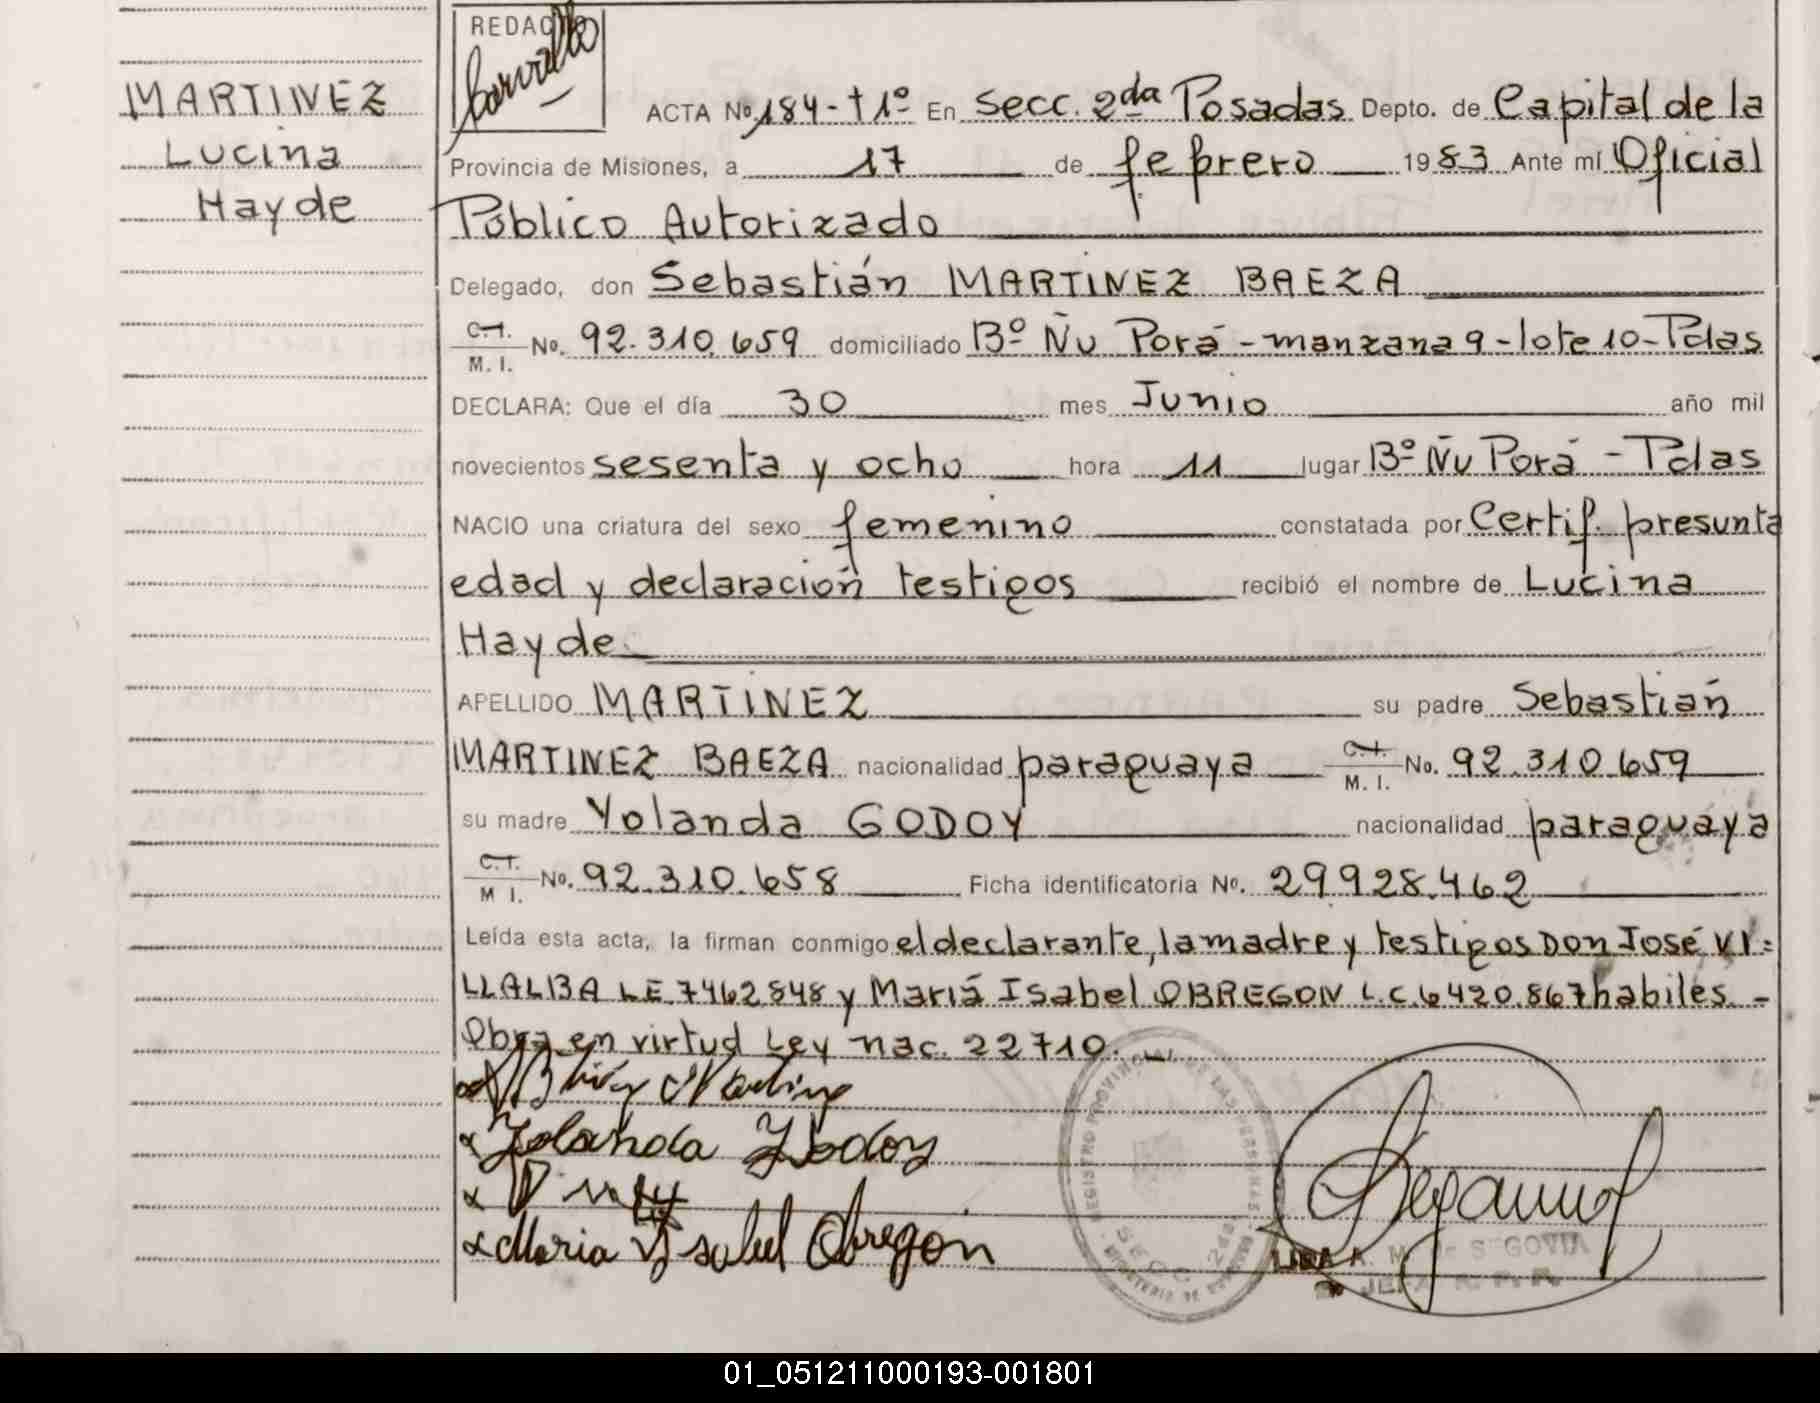 MARTINEZ
Lucina
Hayde
REDAC
Carvallo
ACTA No. 184-t1º En Secc. 2da Posadas Depto. de Capital de la
Provincia de Misiones, a 17 de febrero 1983 Ante mí Oficial
Público Autorizado
Delegado, don Sebastián MARTINEZ BAEZA
C.I. M. I. No. 92.310.659 domiciliado Bº Ñu Porá - manzana 9 - lote 10 - Pdas
DECLARA: Que el día 30 mes Junio año mil
novecientos sesenta y ocho hora 11 lugar Bº Ñu Porá - Pdas
NACIO una criatura del sexo femenino constatada por Certif. presunta
edad y declaración testigos recibió el nombre de Lucina
Hayde
APELLIDO MARTINEZ su padre Sebastián
MARTINEZ BAEZA nacionalidad paraguaya C.I. M. I. No. 92.310.659
su madre Yolanda GODOY nacionalidad paraguaya
C.I. M I. No. 92.310.658 Ficha identificatoria No. 29928.462
Leída esta acta, la firman conmigo el declarante, la madre y testigos Don José VI=
LLALBA LE.7462848 y María Isabel OBREGON L.C.6420.867 habiles. -
Obra en virtud Ley nac. 22710. -
Yolanda Godoy
Maria Ysabel Obregón
REGISTRO PROVINCIAL DE LAS PERSONAS
SECC. 2da
SEGOVIA
01_051211000193-001801